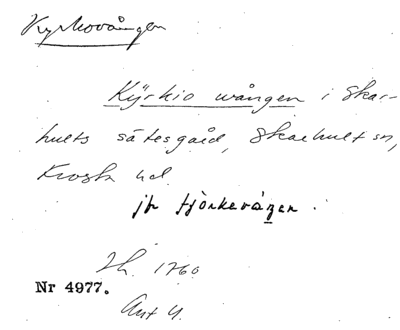 Kyrkovången
Kÿrkio wången i Skar-
hults sätesgård, Skarhult sn,
Frosta hd.
jfr tjörkevången.
Lh. 1760.
Nr 4977.
Ant 4.